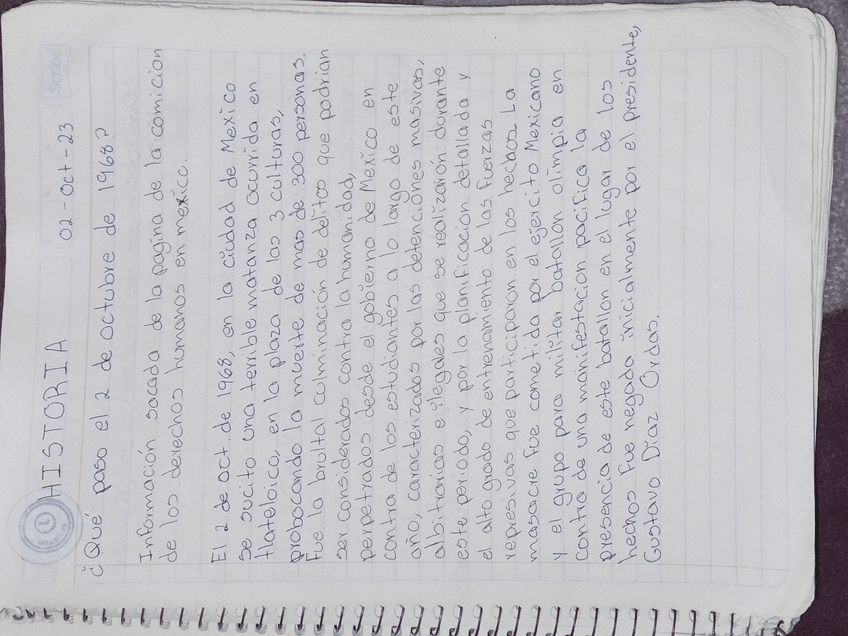 HISTORIA
02-Oct-23
Scribe
¿Qué paso el 2 de octubre de 1968?
Información sacada de la pagina de la comicion
de los derechos humanos en mexico.
El 2 de oct. de 1968, en la ciudad de Mexico
se sucito una terrible matanza ocurrida en
tlateloico, en la plaza de las 3 culturas,
probocando la muerte de mas de 300 personas.
Fue la brultal culminación de delitos que podrian
ser considerados contra la humanidad,
perpetrados desde el gobierno de México en
contra de los estudiantes a lo largo de este
año, caracterizados por las detenciones masivas,
albitrarias e ilegales que se realizarón durante
este periodo, y por la planificación detallada y
el alto grado de entrenamiento de las Fuerzas
represivas que participaron en los hechos. La
masacre fue cometida por el ejercito Mexicano
y el grupo para militar batallón olimpia en
contra de una manifestación pacifica la
presencia de este batallon en el lugar de los
hechos fue negada inicialmente por el presidente,
Gustavo Diaz Ordas.